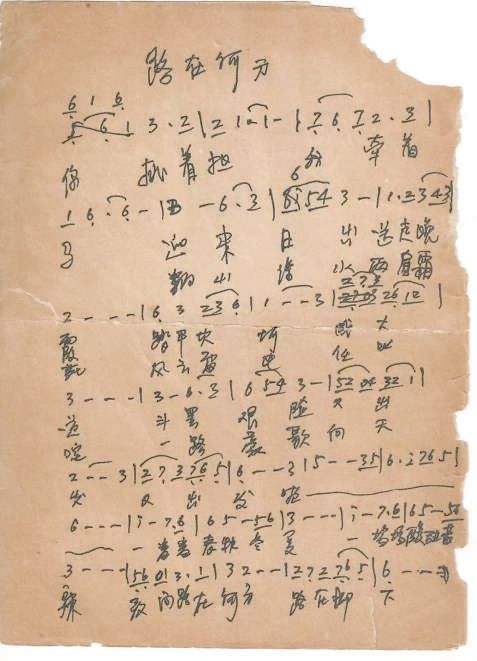 路在何方
6 1 6
1 6 1 3 · 2 | 2 1 · 1 - | 7 6 7 2 · 3 |
你 挑着担 我 牵着
1 6 · 6 - | - 6 · 3 | 54 3 - | 1 · 2 3 4 3
马 迎来日出 送走晚
翻山涉水两肩霜
2 - - - | 6 · 3 23 6 | 1 - - 3 | 26 12
霞 踏平坎坷 成大
风云雷电 任叱
3 - - - | 3 - 6 · 3 | 6 54 3 - | 52 04 32 1
道 斗罢艰险 又出
一路豪歌向天
2 - - 3 | 27 37 65 | 6 - - 3 | 5 - - 35 | 6 · 2 765 |
发 又出发 啦
6 - - - | 1 - 7 · 6 | 6 5 - 56 | 3 - - - | 1 - 7 · 6 | 6 5 - 56
一番番春秋冬夏 一场场酸甜苦
3 - - - | 56 01 3 · 1 | 3 2 - - | 27 27 65 | 6 - - -
辣 敢问路在何方 路在脚下